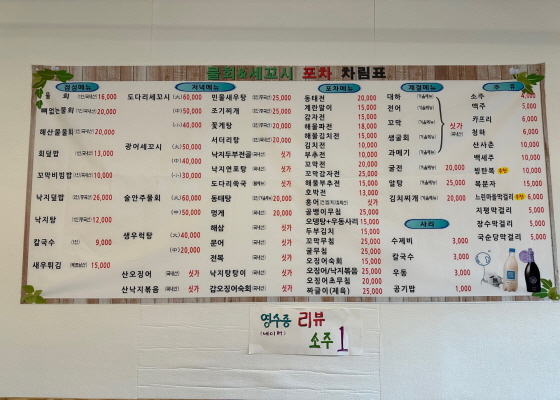 물회&세꼬시 포차 차림표
점심메뉴
물 회 16,000
뼈없는물회 20,000
해산물물회 20,000
회덮밥 13,000
꼬막비빔밥 10,000
낙지덮밥 26,000
낙지탕 12,000
칼국수 9,000
새우튀김 15,000
저녁메뉴
도다리세꼬시 (大) 60,000
(中) 50,000
(小) 40,000
광어세꼬시 (大) 50,000
(中) 40,000
(小) 30,000
술안주세꼬시 (大) 60,000
(中) 50,000
생우럭탕 (大) 40,000
(中) 20,000
산오징어 싯가
산낙지볶음 싯가
민물새우탕 25,000
조기찌개 25,000
꽃게탕 20,000
서더리탕 20,000
낙지두부전골 싯가
낙지연포탕 싯가
도다리쑥국 싯가
동태탕 20,000
멍게 20,000
해삼 싯가
문어 싯가
전복 싯가
낙지탕탕이 싯가
갑오징어숙회 싯가
포차메뉴
동태전 20,000
계란말이 15,000
감자전 15,000
해물파전 18,000
해물김치전 15,000
김치전 10,000
부추전 10,000
꼬막전 20,000
꼬막감자전 25,000
해물부추전 15,000
호박전 13,000
홍어 싯가
골뱅이무침 25,000
오뎅탕+우동사리 15,000
두부김치 15,000
꼬막무침 25,000
굴무침 25,000
오징어숙회 15,000
오징어/낙지볶음 25,000
오징어초무침 20,000
짜글이(제육) 25,000
계절메뉴
대하
전어
꼬막
생굴회
과메기
싯가
굴전 20,000
알탕 25,000
김치찌개 20,000
사리
수제비 3,000
칼국수 3,000
우동 3,000
공기밥 1,000
주 류
소주 4,000
맥주 5,000
카프리 6,000
청하 6,000
산사춘 10,000
백세주 10,000
밤탄톡 10,000
복분자 15,000
느린마을막걸리 6,000
지평막걸리 5,000
장수막걸리 5,000
국순당막걸리 5,000
영수증 리뷰
(네이버)
소주 1